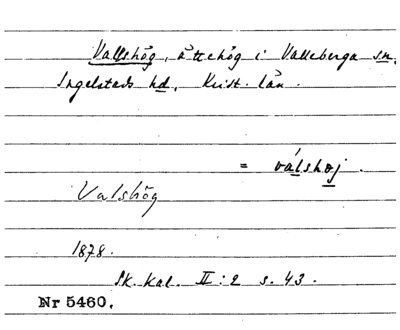 Vallshög, ättehög i Valleberga sn.
Ingelstads hd, Krist. län.
=válshøj.
Valshög
1878.
Sk. Kal. II:2 s. 43.
Nr 5460.